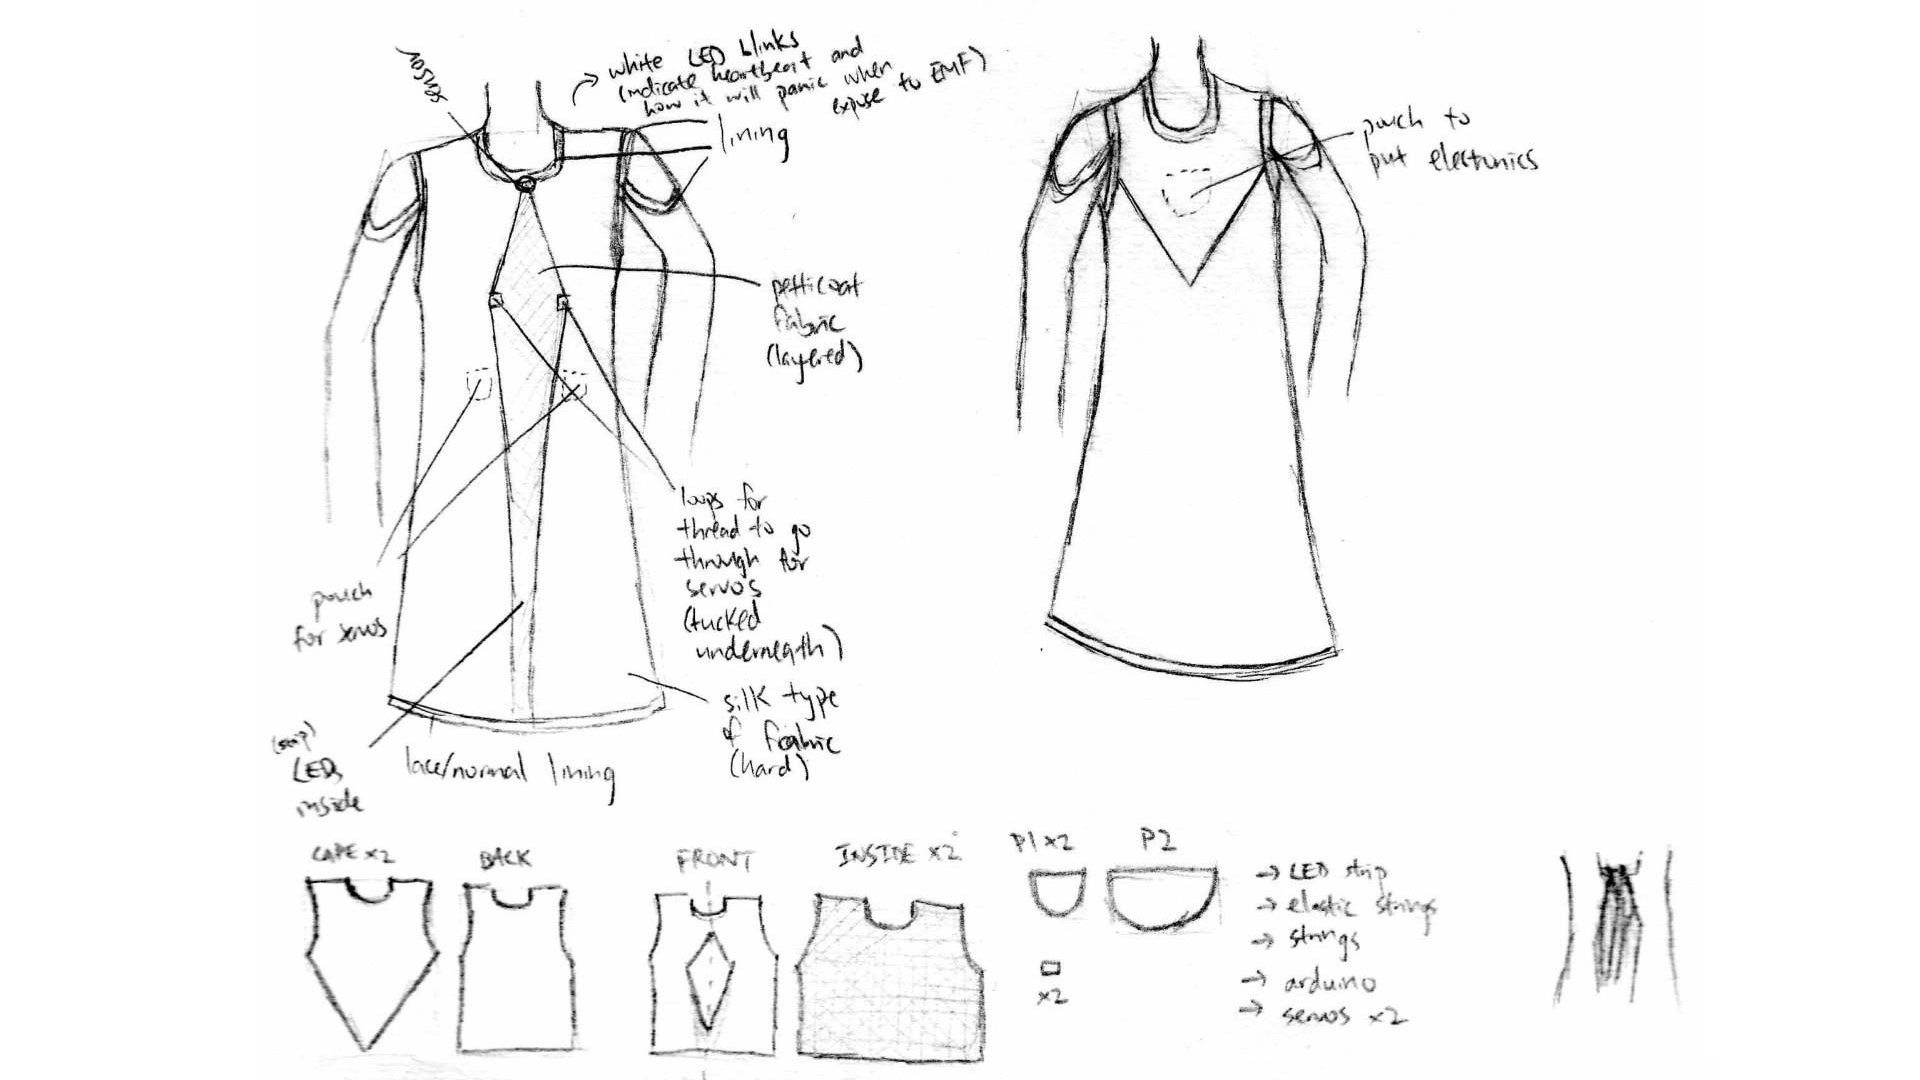 sensor
white LED blinks
(indicate heartbeat and
how it will panic when
expose to EMF)
lining
pouch to
put electronics
petticoat
fabric
(layered)
loops for
thread to go
through for
servos
(tucked
underneath)
pouch
for servos
silk type
of fabric
(hard)
(strip)
LEDs
inside
lace/normal lining
CAPE x2
BACK
FRONT
INSIDE x2
P1 x2
P2
x2
→ LED strip
→ elastic strings
→ strings
→ arduino
→ servos x2